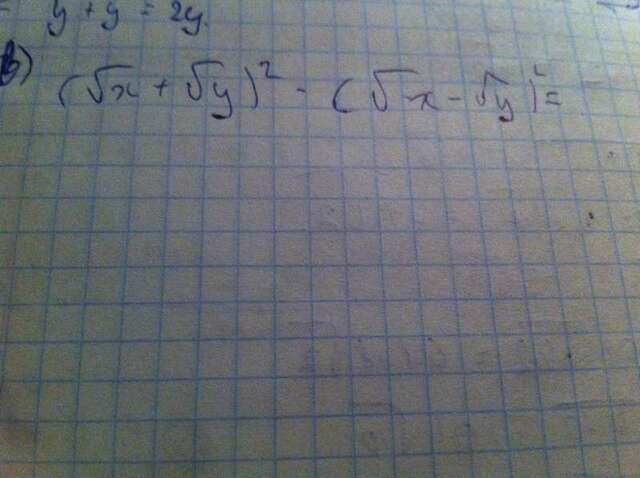 y + y = 2y.
б) (√x + √y)² - (√x - √y)² =